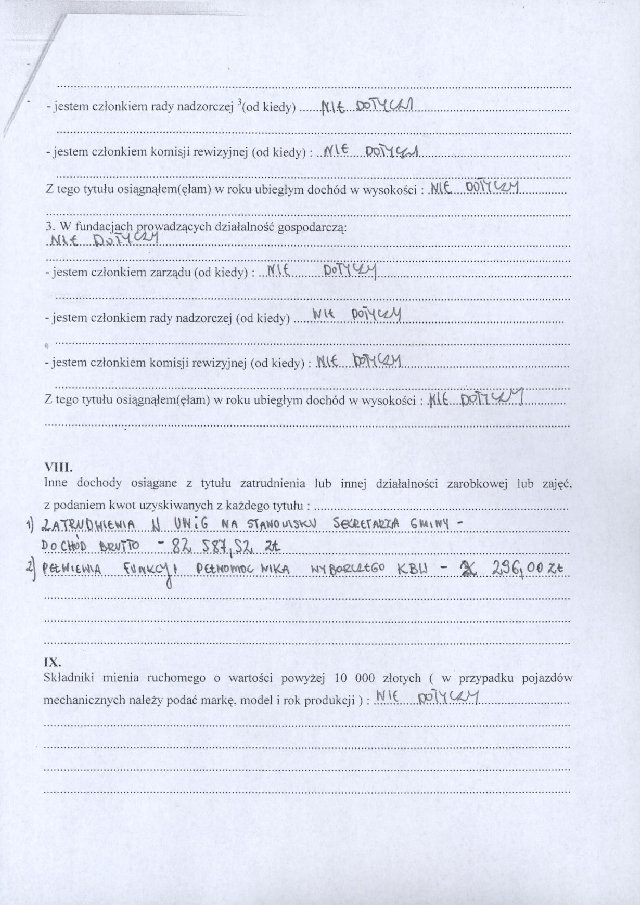 - jestem członkiem rady nadzorczej ³(od kiedy) ...... NIE DOTYCZY
- jestem członkiem komisji rewizyjnej (od kiedy) : .. NIE DOTYCZY
Z tego tytułu osiągnąłem(ęłam) w roku ubiegłym dochód w wysokości : NIE DOTYCZY
3. W fundacjach prowadzących działalność gospodarczą:
NIE DOTYCZY
- jestem członkiem zarządu (od kiedy) : .. NIE DOTYCZY
- jestem członkiem rady nadzorczej (od kiedy) .... NIE DOTYCZY
- jestem członkiem komisji rewizyjnej (od kiedy) : NIE DOTYCZY
Z tego tytułu osiągnąłem(ęłam) w roku ubiegłym dochód w wysokości : NIE DOTYCZY
VIII.
Inne dochody osiągane z tytułu zatrudnienia lub innej działalności zarobkowej lub zajęć,
z podaniem kwot uzyskiwanych z każdego tytułu :
1) ZATRUDNIENIA W UMiG NA STANOWISKU SEKRETARZA GMINY -
DOCHÓD BRUTTO - 82 587,52 zł
2) PEŁNIENIA FUNKCJI PEŁNOMOCNIKA WYBORCZEGO KBW - 296,00 zł
IX.
Składniki mienia ruchomego o wartości powyżej 10 000 złotych ( w przypadku pojazdów
mechanicznych należy podać markę, model i rok produkcji ) : NIE DOTYCZY